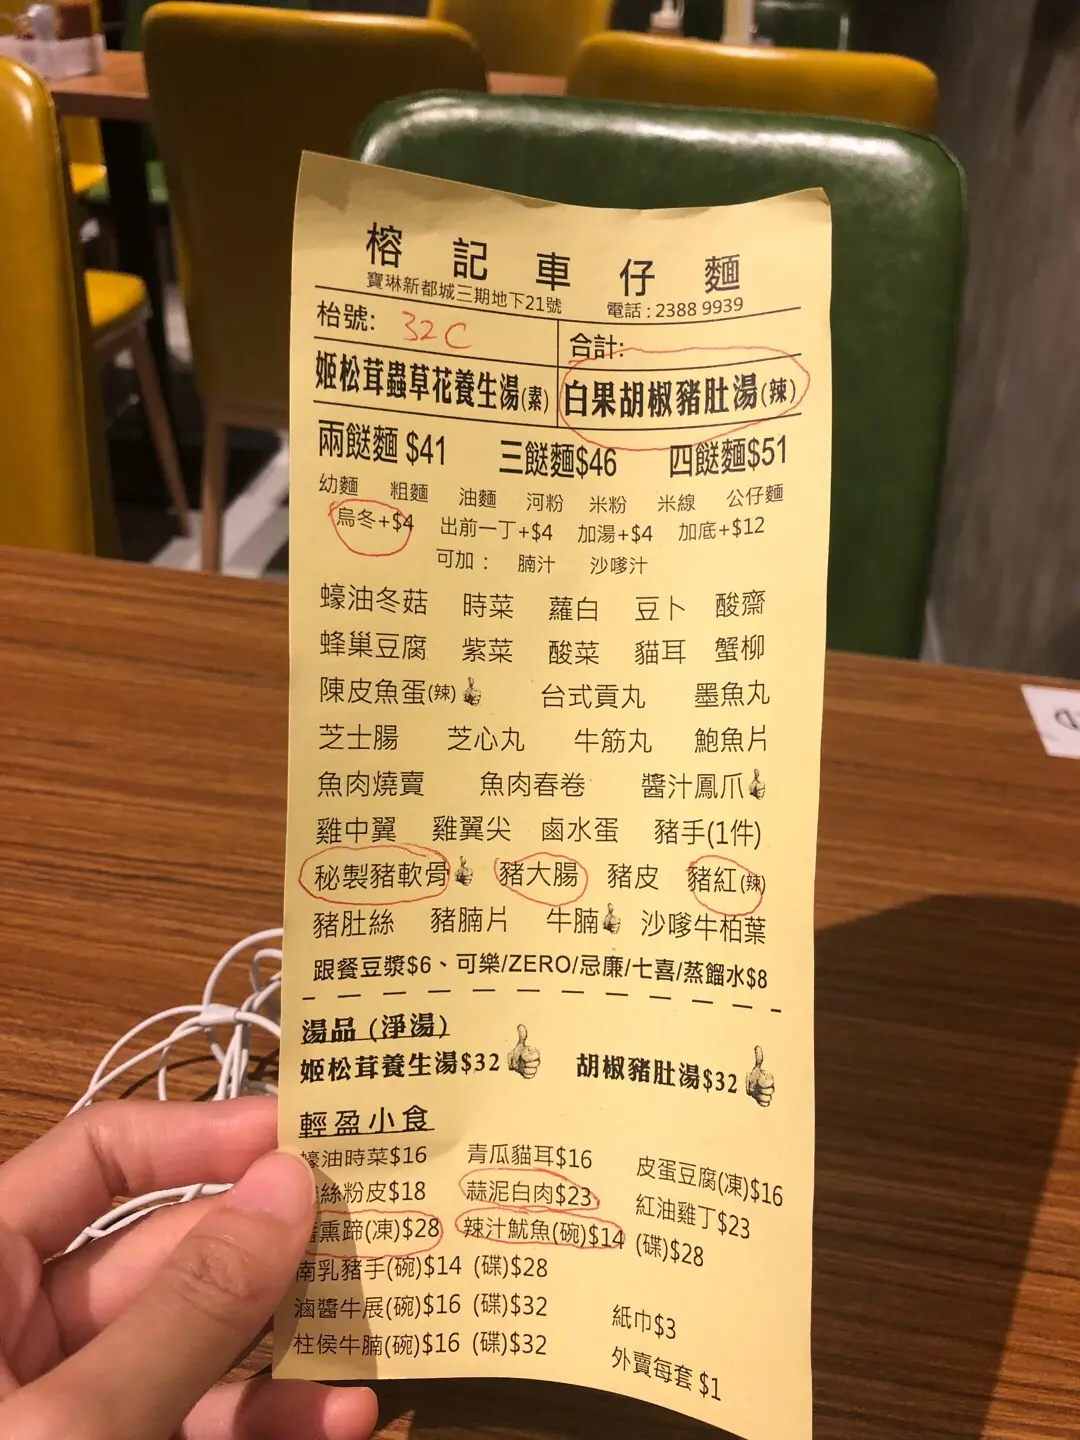 榕記車仔麵
寶琳新都城三期地下21號 電話:2388 9939
枱號: 32C 合計:
姬松茸蟲草花養生湯(素) 白果胡椒豬肚湯(辣)
兩餸麵 $41 三餸麵$46 四餸麵$51
幼麵 粗麵 油麵 河粉 米粉 米線 公仔麵
烏冬+$4 出前一丁+$4 加湯+$4 加底+$12
可加: 腩汁 沙嗲汁
蠔油冬菇 時菜 蘿白 豆卜 酸齋
蜂巢豆腐 紫菜 酸菜 貓耳 蟹柳
陳皮魚蛋(辣) 台式貢丸 墨魚丸
芝士腸 芝心丸 牛筋丸 鮑魚片
魚肉燒賣 魚肉春卷 醬汁鳳爪
雞中翼 雞翼尖 鹵水蛋 豬手(1件)
秘製豬軟骨 豬大腸 豬皮 豬紅(辣)
豬肚絲 豬腩片 牛腩 沙嗲牛柏葉
跟餐豆漿$6、可樂/ZERO/忌廉/七喜/蒸餾水$8
湯品 (淨湯)
姬松茸養生湯$32 胡椒豬肚湯$32
輕盈小食
蠔油時菜$16 青瓜貓耳$16 皮蛋豆腐(凍)$16
絲粉皮$18 蒜泥白肉$23 紅油雞丁$23
熏蹄(凍)$28 辣汁魷魚(碗)$14 (碟)$28
南乳豬手(碗)$14 (碟)$28
滷醬牛展(碗)$16 (碟)$32 紙巾$3
柱侯牛腩(碗)$16 (碟)$32 外賣每套 $1